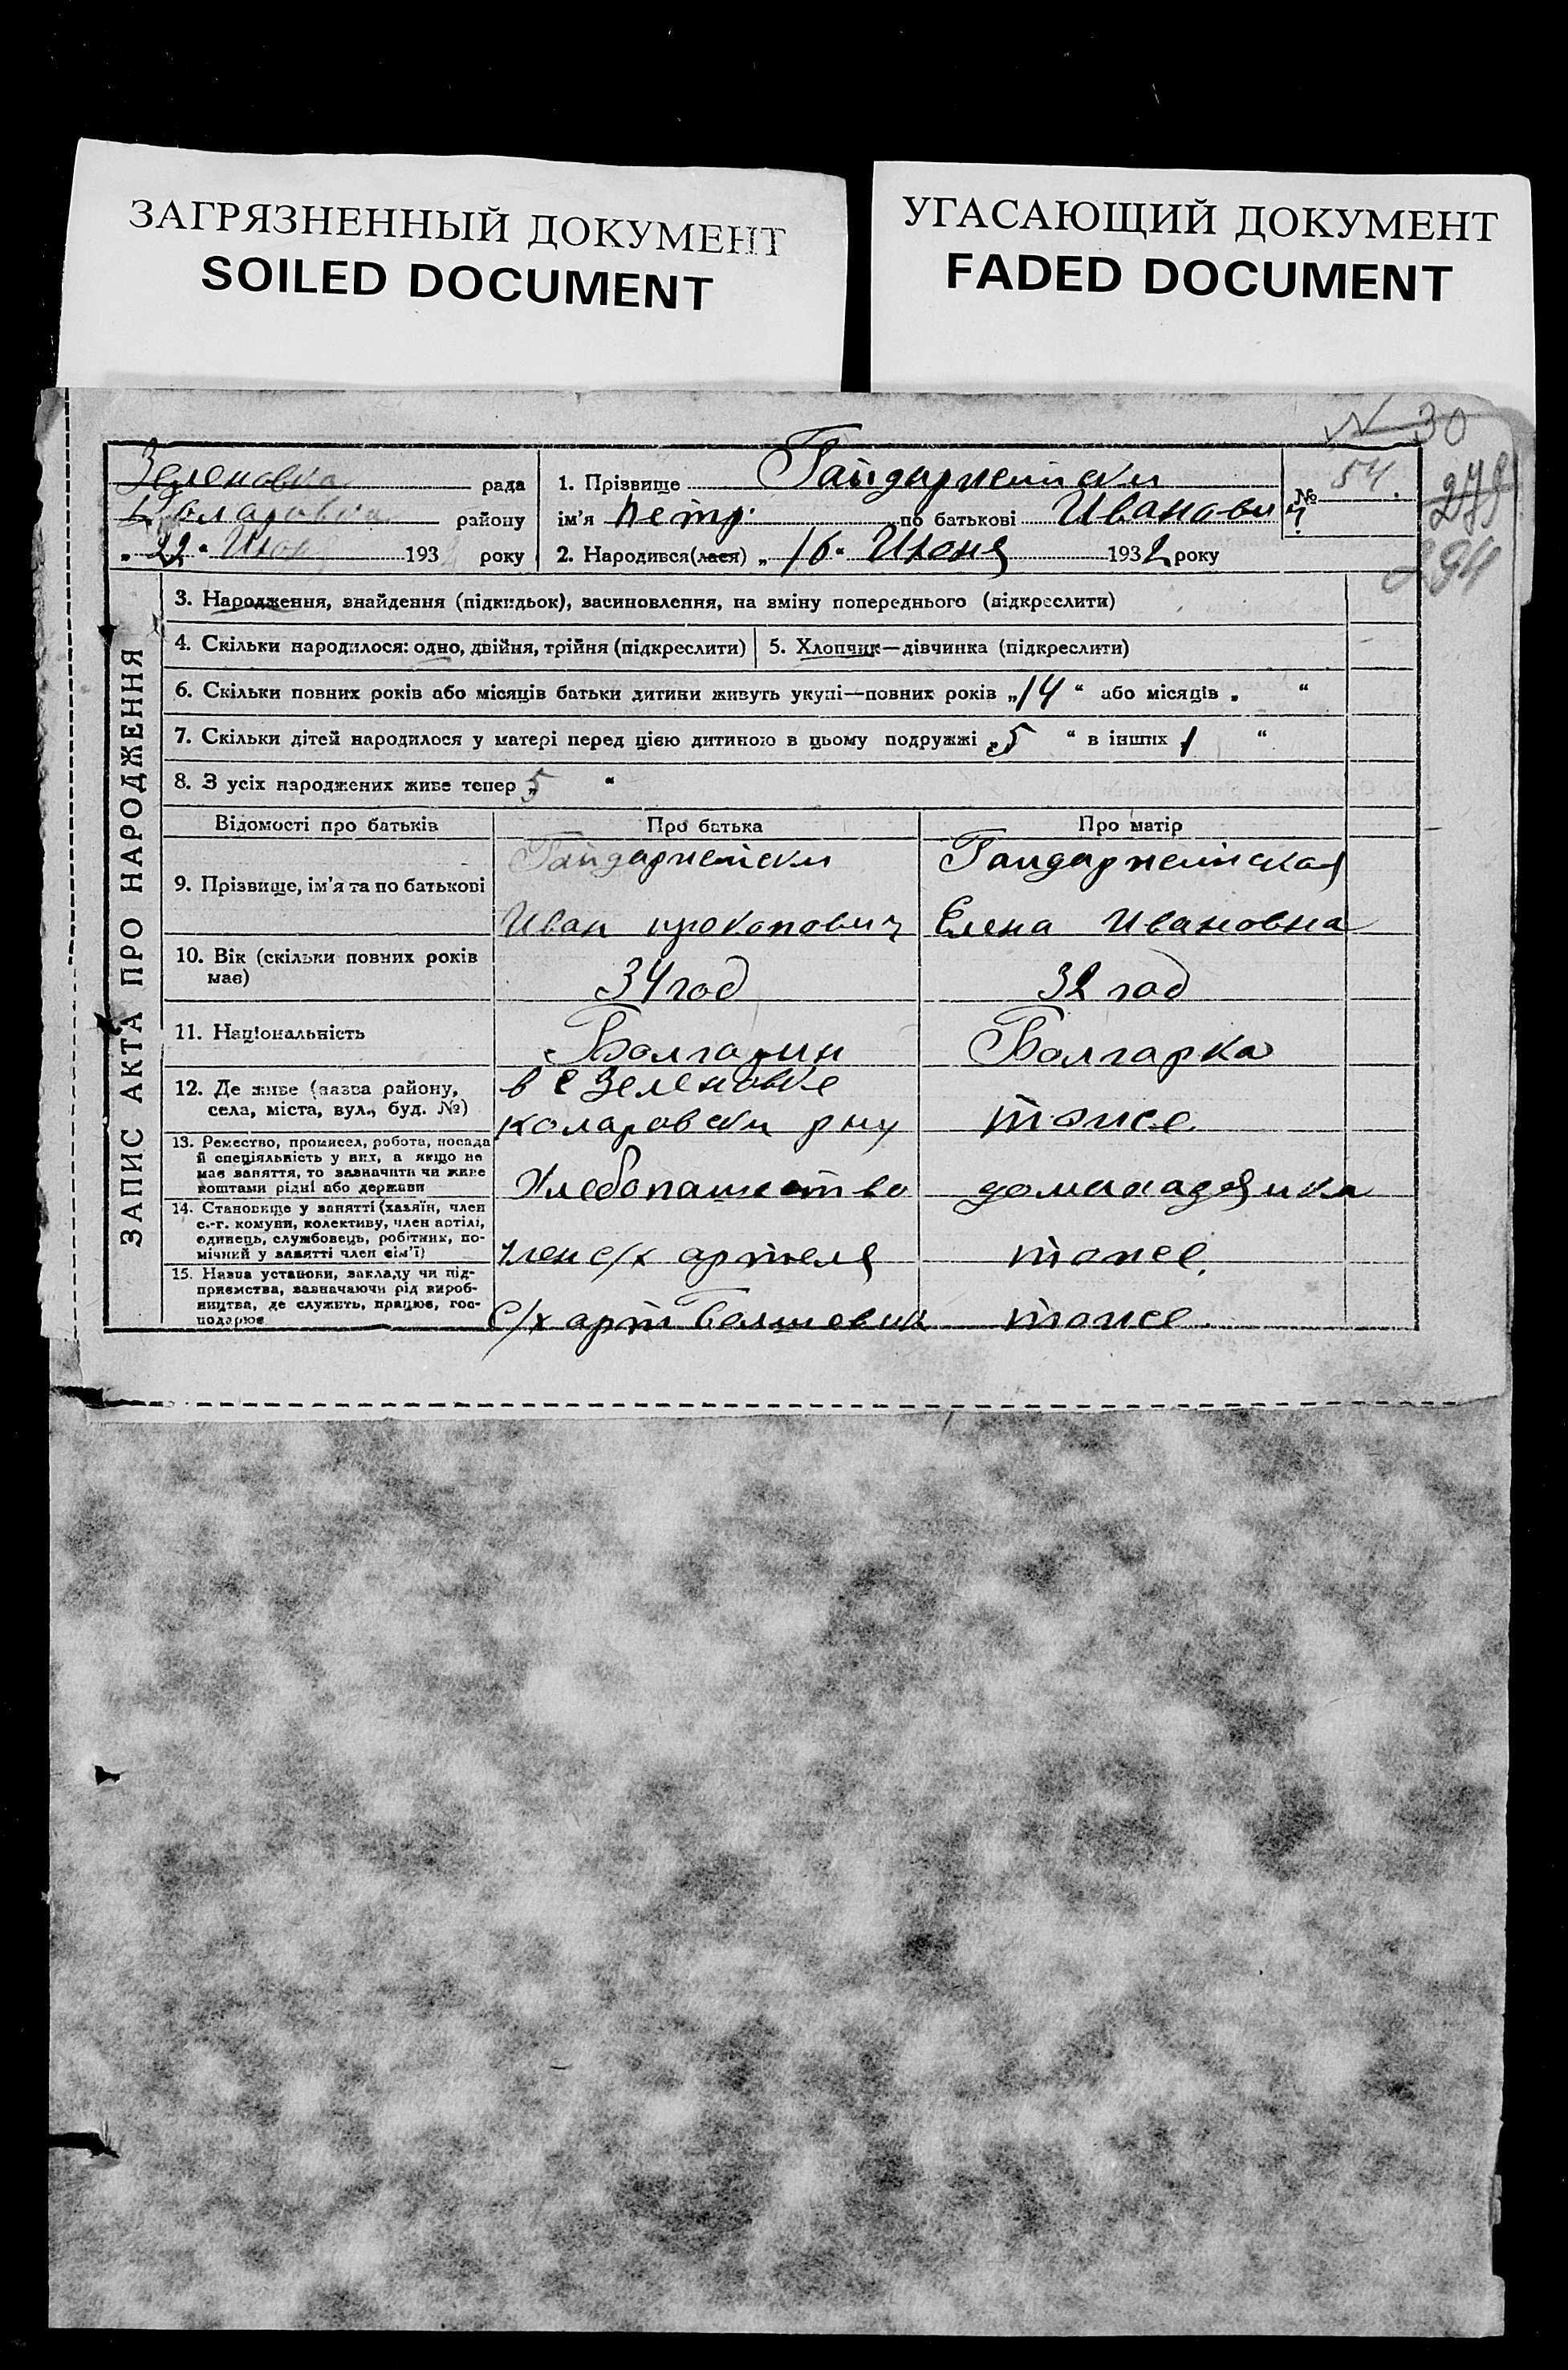 ЗАГРЯЗНЕННЫЙ ДОКУМЕНТ
SOILED DOCUMENT
УГАСАЮЩИЙ ДОКУМЕНТ
FADED DOCUMENT
№ 30
Зеленовка рада
Коларовка району
„22“ Июня 193 року
1. Прізвище Гайдаржийски
ім'я Петр по батькові Иванови
2. Народився(лася) „16“ Июня 1932 року
№ 54.
294
ЗАПИС АКТА ПРО НАРОДЖЕННЯ
3. Народження, знайдення (підкидьок), засиновлення, на зміну попереднього (підкреслити)
4. Скільки народилося: одно, двійня, трійня (підкреслити)
5. Хлопчик—дівчинка (підкреслити)
6. Скільки повних років або місяців батьки дитини живуть укупі—повних років „14“ або місяців „ “
7. Скільки дітей народилося у матері перед цією дитиною в цьому подружжі „5“ в інших 1 “
8. З усіх народжених живе тепер „5 “
Відомості про батьків Про батька Про матір
9. Прізвище, ім'я та по батькові
Гайдаржийски
Иван прокопович
Гайдаржийская
Елена Ивановна
10. Вік (скільки повних років
має)
34 год
32 год
11. Національність
Болгарин
Болгарка
12. Де живе (назва району,
села, міста, вул., буд. №)
в с Зеленовке
коларовски рну
тоже
13. Ремество, промисел, робота, посада
й спеціяльність у них, а якщо не
має заняття, то зазначити чи живе
коштами рідні або держави
Хлебопашество
домахадзяика
14. Становище у занятті (хазяїн, член
с.-г. комуни, колективу, член артілі,
одинець, службовець, робітник, по-
мічний у занятті член сім'ї)
член с/х артеля
тоже.
15. Назва установи, закладу чи під-
приємства, зазначаючи рід вироб-
ництва, де служить, працює, гос-
подарює
С/х арт Болшевик
тоже.